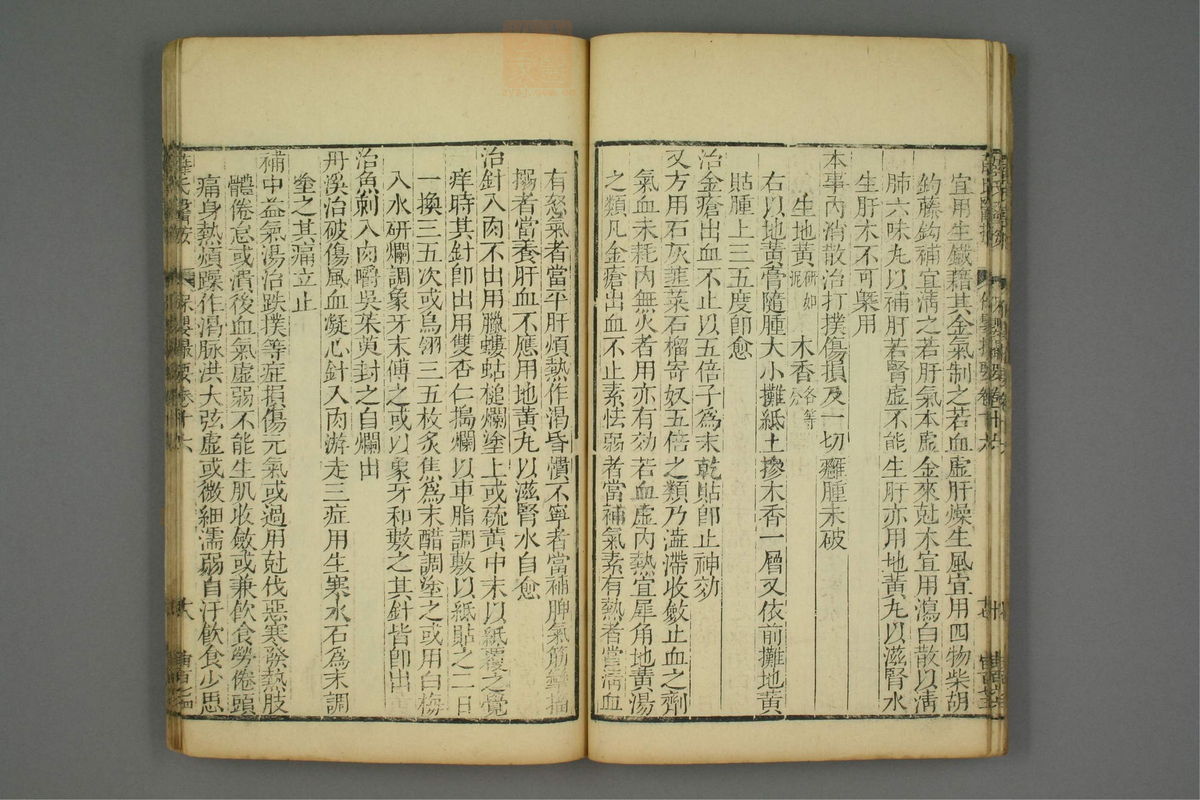 宜用生鐵藉其金氣制之若血虛肝燥生風宜用四物柴胡
鈎藤鈎補宜清之若肝氣本虛金來尅木宜用瀉白散以清
肺六味丸以補肝若腎虛不能生肝亦用地黃丸以滋腎水
生肝木不可槩用
本事內消散治打撲傷損及一切癰腫未破
生地黃研如泥 木香各等分
右以地黃膏隨腫大小攤紙上摻木香一層又依前攤地黃
貼腫上三五度卽愈
治金瘡出血不止以五倍子爲末乾貼卽止神効
又方用石灰韮菜石榴寄奴五倍之類乃澁滯收斂止血之劑
氣血未耗內無火者用亦有効若血虛內熱宜犀角地黃湯
之類凡金瘡出血不止素怯弱者當補氣素有熱者當清血
有怒氣者當平肝煩熱作渴昏憒不寧者當補脾氣筋攣搐
搦者當養肝血不應用地黃丸以滋腎水自愈
治針入肉不出用臘螻蛄槌爛塗上或硫黃中末以紙覆之覺
痒時其針卽出用雙杏仁搗爛以車脂調敷以紙貼之二日
一換三五次或烏翎三五枚炙焦爲末醋調塗之或用白梅
入水研爛調象牙末傅之或以象牙和敷之其針皆卽出
治魚刺入肉嚼吳茱萸封之自爛出
丹溪治破傷風血凝心針入肉游走三症用生寒水石爲末調
塗之其痛立止
補中益氣湯治跌撲等症損傷元氣或過用尅伐惡寒發熱肢
體倦怠或潰後血氣虛弱不能生肌收斂或兼飲食勞倦頭
痛身熱煩躁作渴脉洪大弦虛或微細濡弱自汗飲食少思
薛氏醫按 保嬰撮要卷十六